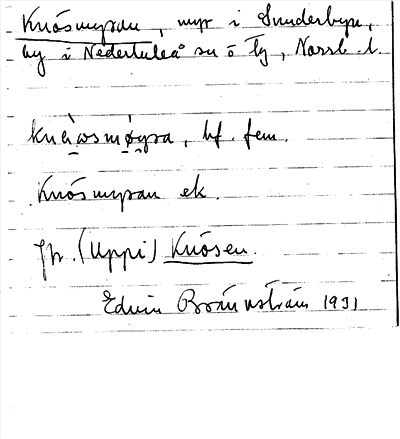 Knösmyran, myr i Sunderbyn,
by i Nederluleå sn ö ty, Norrb. l.
knèωsmøyra, bf. fem.
Knösmyran ek.
Jfr. (Uppi) Knösen.
Edvin Brännström 1931